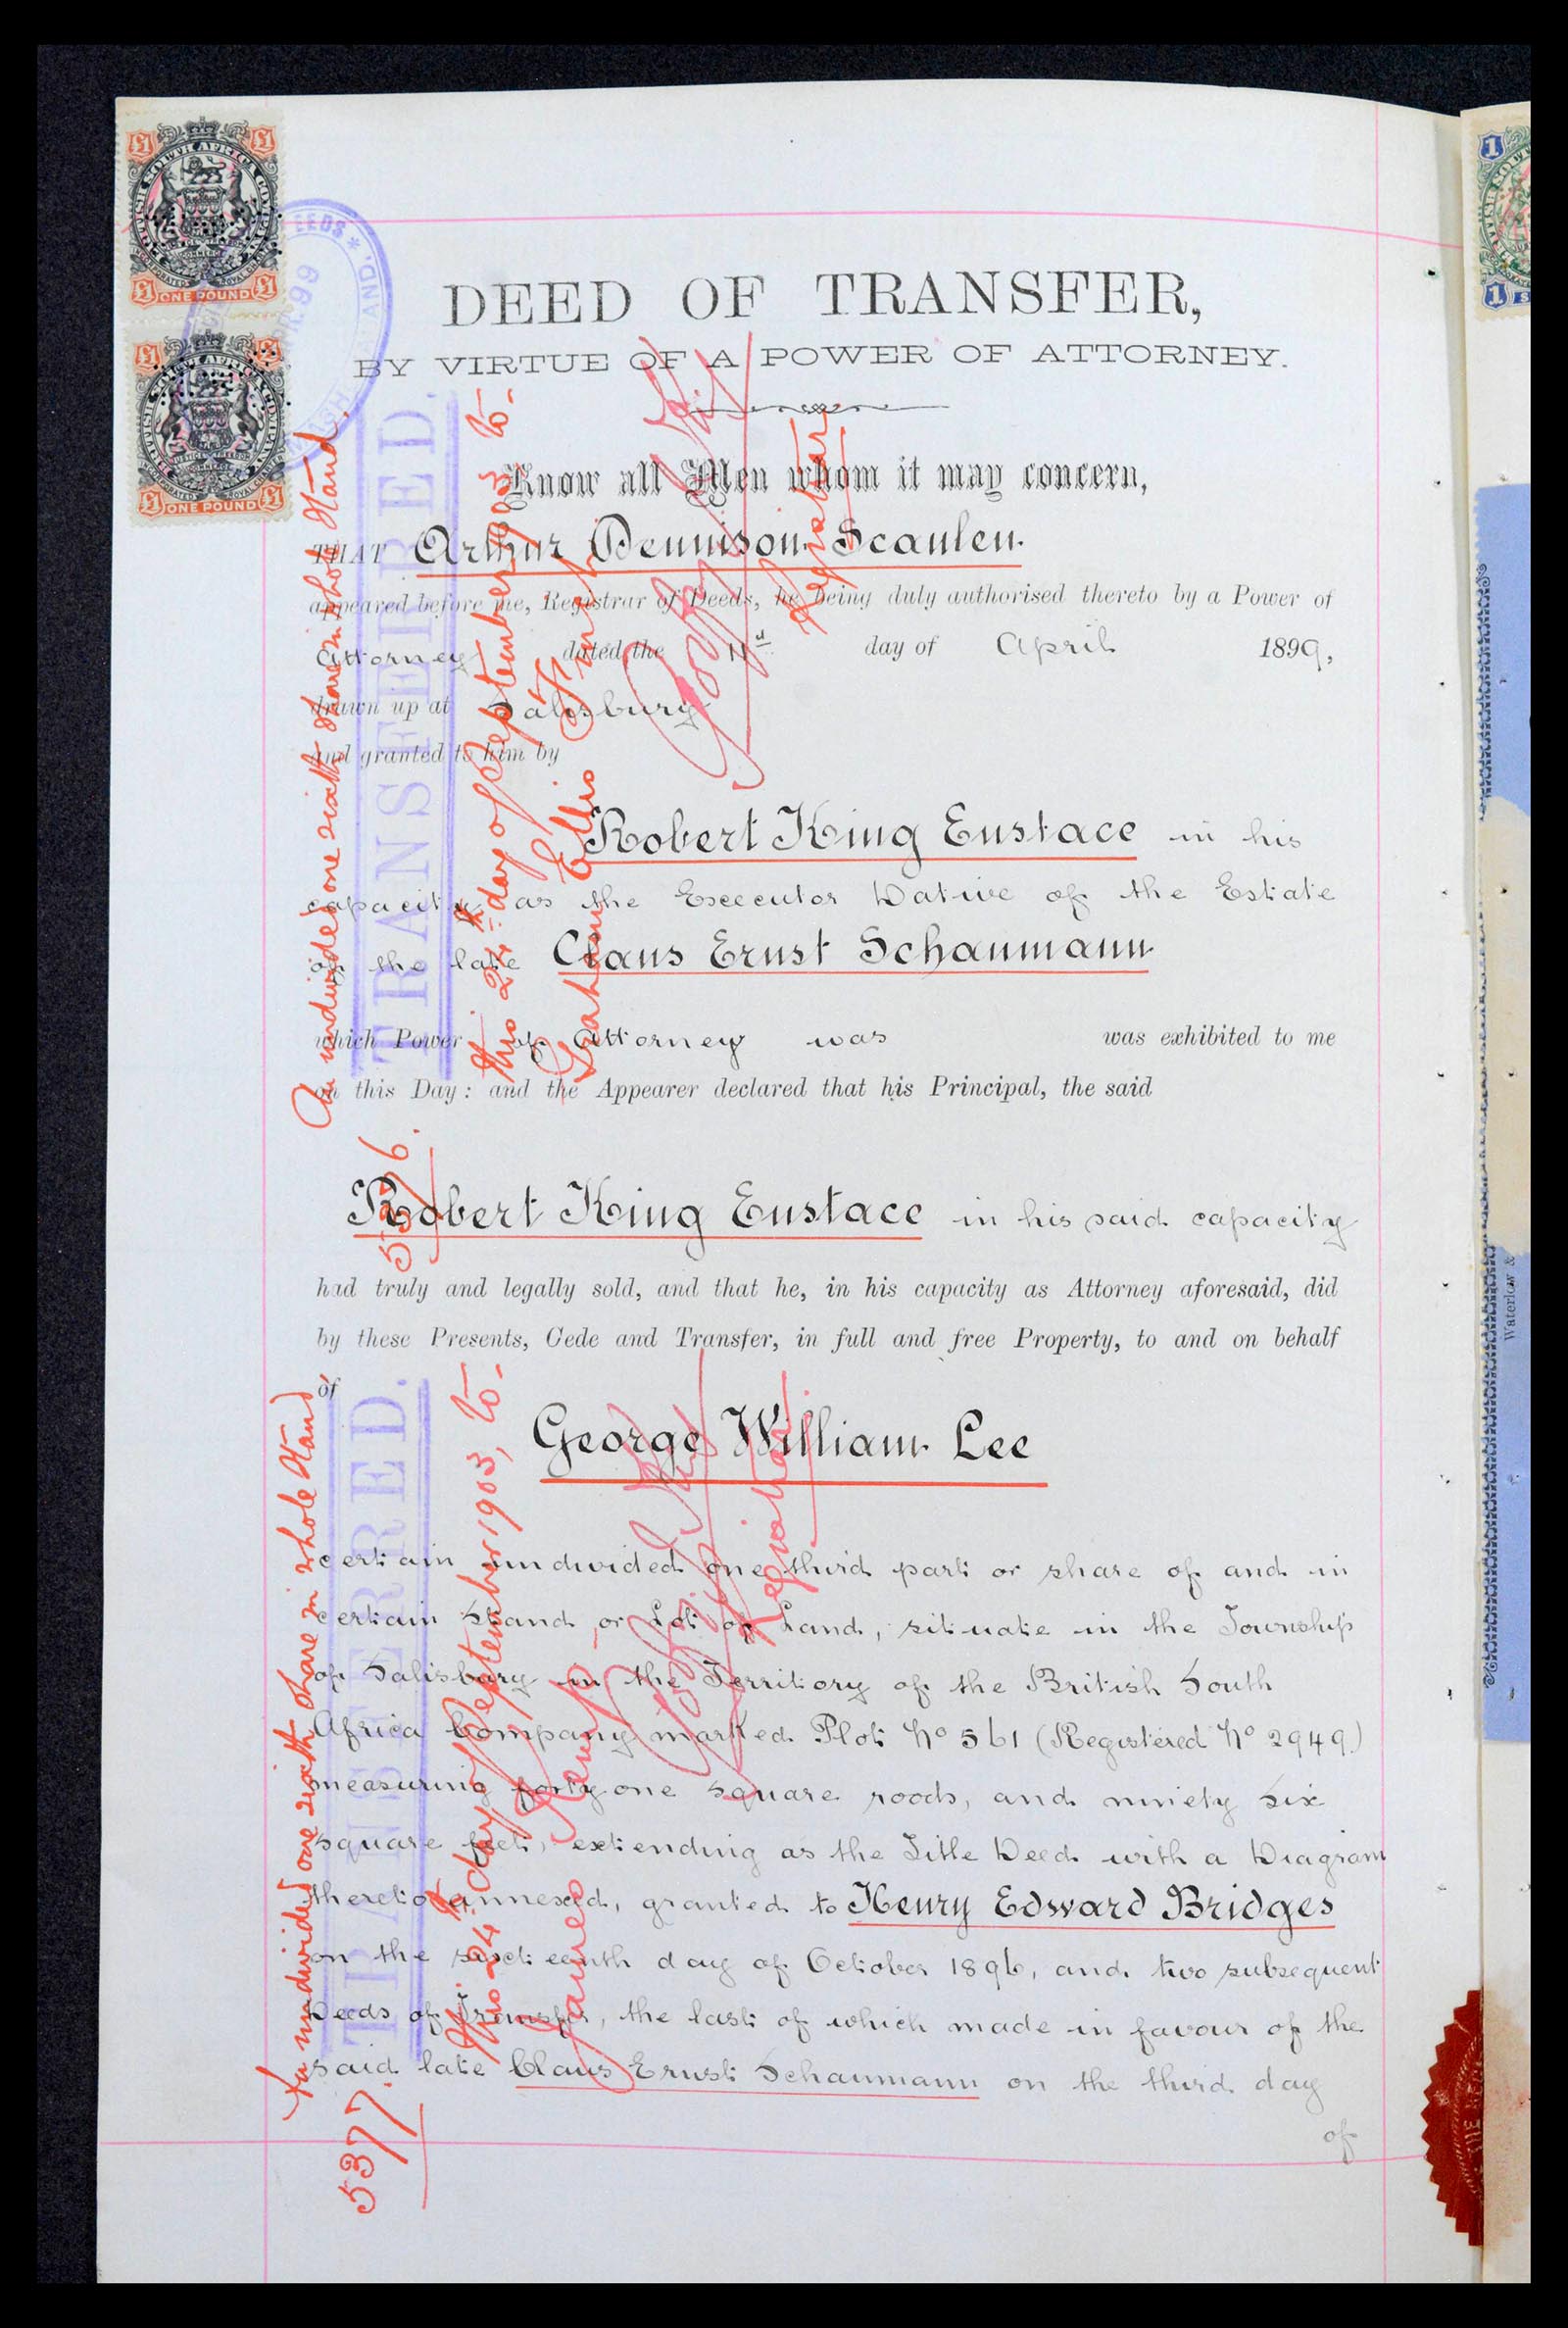 £1 £1
BRITISH SOUTH AFRICA COMPANY
INCORPORATED ROYAL CHARTER
£1 ONE POUND £1
£1 £1
BRITISH SOUTH AFRICA COMPANY
JUSTICE FREEDOM COMMERCE
INCORPORATED ROYAL CHARTER
£1 ONE POUND £1
DEEDS *
99
DEED OF TRANSFER,
BY VIRTUE OF A POWER OF ATTORNEY.
Know all Men whom it may concern,
THAT Arthur Dennison Scanlen
appeared before me, Registrar of Deeds, he being duly authorised thereto by a Power of
Attorney dated the day of April 1899,
drawn up at Salisbury
and granted to him by
Robert King Eustace in his
capacity as the Executor Dative of the Estate
of the late Claus Ernst Schaumann
which Power of Attorney was was exhibited to me
on this Day: and the Appearer declared that his Principal, the said
Robert King Eustace in his said capacity
had truly and legally sold, and that he, in his capacity as Attorney aforesaid, did
by these Presents, Cede and Transfer, in full and free Property, to and on behalf
of
George William Lee
certain undivided one third part or share of and in
certain Stand or Lot of Land, situate in the Township
of Salisbury in the Territory of the British South
Africa Company marked Plot No 561 (Registered No 2949)
measuring forty one square roods, and ninety six
square feet, extending as the Title Deed with a Diagram
thereto annexed, granted to Henry Edward Bridges
on the sixteenth day of October 1896, and two subsequent
Deeds of Transfer, the last of which made in favour of the
said late Claus Ernst Schaumann on the third day
of
An undivided one sixth share in whole Stand.
TRANSFERRED.
this 24th day of September 1903 to-
Graham Ellis
Registrar
5376.
An undivided one sixth share in whole Stand
TRANSFERRED.
this 24th day of September 1903, to-
James Kemp
Registrar.
5377.
1
1 S
Waterlow &